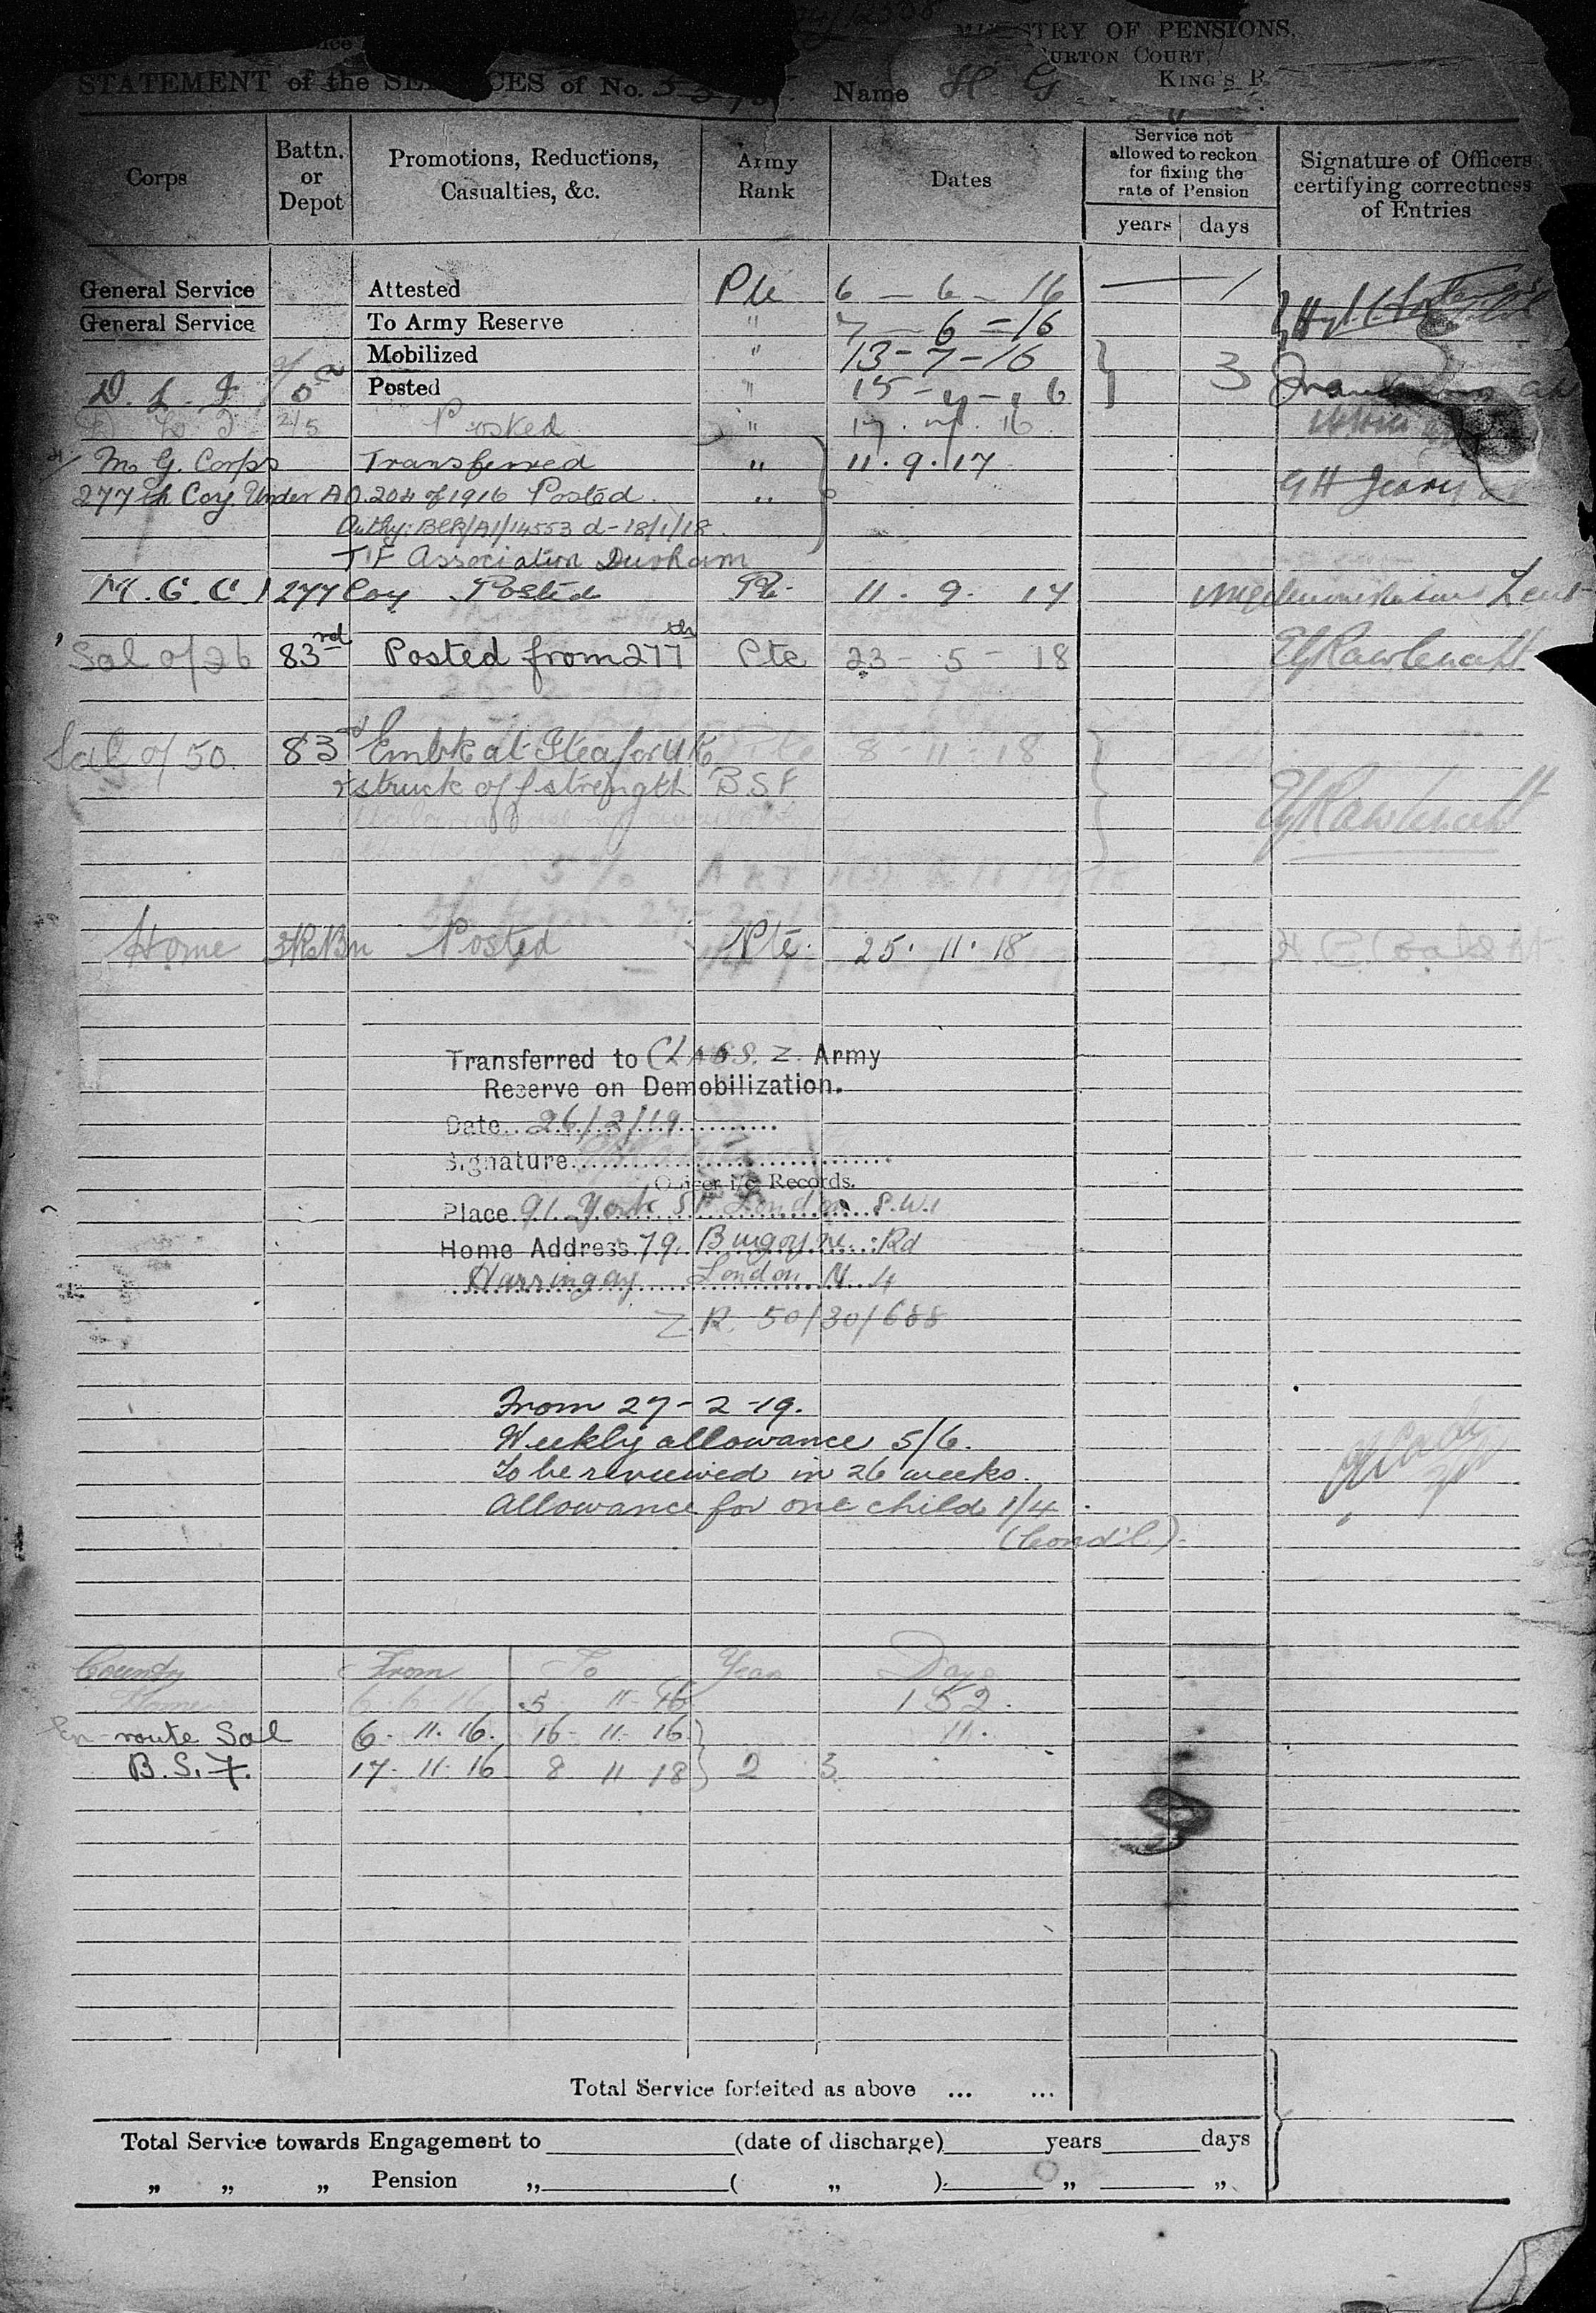 MINISTRY OF PENSIONS,
BURTON COURT,
KING'S R
STATEMENT of the SERVICES of No. Name H G
Corps
Battn. or Depot
Promotions, Reductions, Casualties, &c.
Army Rank
Dates
Service not allowed to reckon for fixing the rate of Pension
years days
Signature of Officers certifying correctness of Entries
General Service Attested Pte 6 - 6 - 16 — 1
General Service To Army Reserve " 7 - 6 - 16
Mobilized " 13 - 7 - 16
D. L. I. Posted " 15 - 7 - 16 3
D L I 2/5 Posted " 17. 7. 16
M. G. Corps Transferred " 11. 9. 17
277th Coy. Under A O. 204 of 1916 Posted " G H
Authy: BER/A1/14553 d - 18/1/18
T F Association Durham
M. G. C. 277 Coy Posted Pte 11. 9. 17 Lieut
Sal o/26 83rd Posted from 277th Pte 23 - 5 - 18
Sal o/50. 83rd Embk at Itea for U K Pte 8 11 18
& struck off strength B S F
Home Bn Posted Pte. 25. 11. 18
Transferred to Class. Z. Army
Reserve on Demobilization.
Date 26/2/19
Signature
Officer i/c Records.
Place 91 York St London S.W.1
Home Address 79. Burgoyne Rd
Harringay London N 4
Z. R. 50/30/688
From 27 - 2 - 19.
Weekly allowance 5/6.
To be reviewed in 26 weeks.
Allowance for one child 1/4.
(Cond'l.)
Country From To Years Days
Home 6. 6. 16 5 11 16 152.
En-route Sal 6. 11. 16. 16 - 11 - 16 11.
B. S. F. 17. 11. 16 8 11 18 2 3
Total Service forfeited as above ... ...
Total Service towards Engagement to (date of discharge) years days
„ „ „ Pension „ ( „ ) „ „